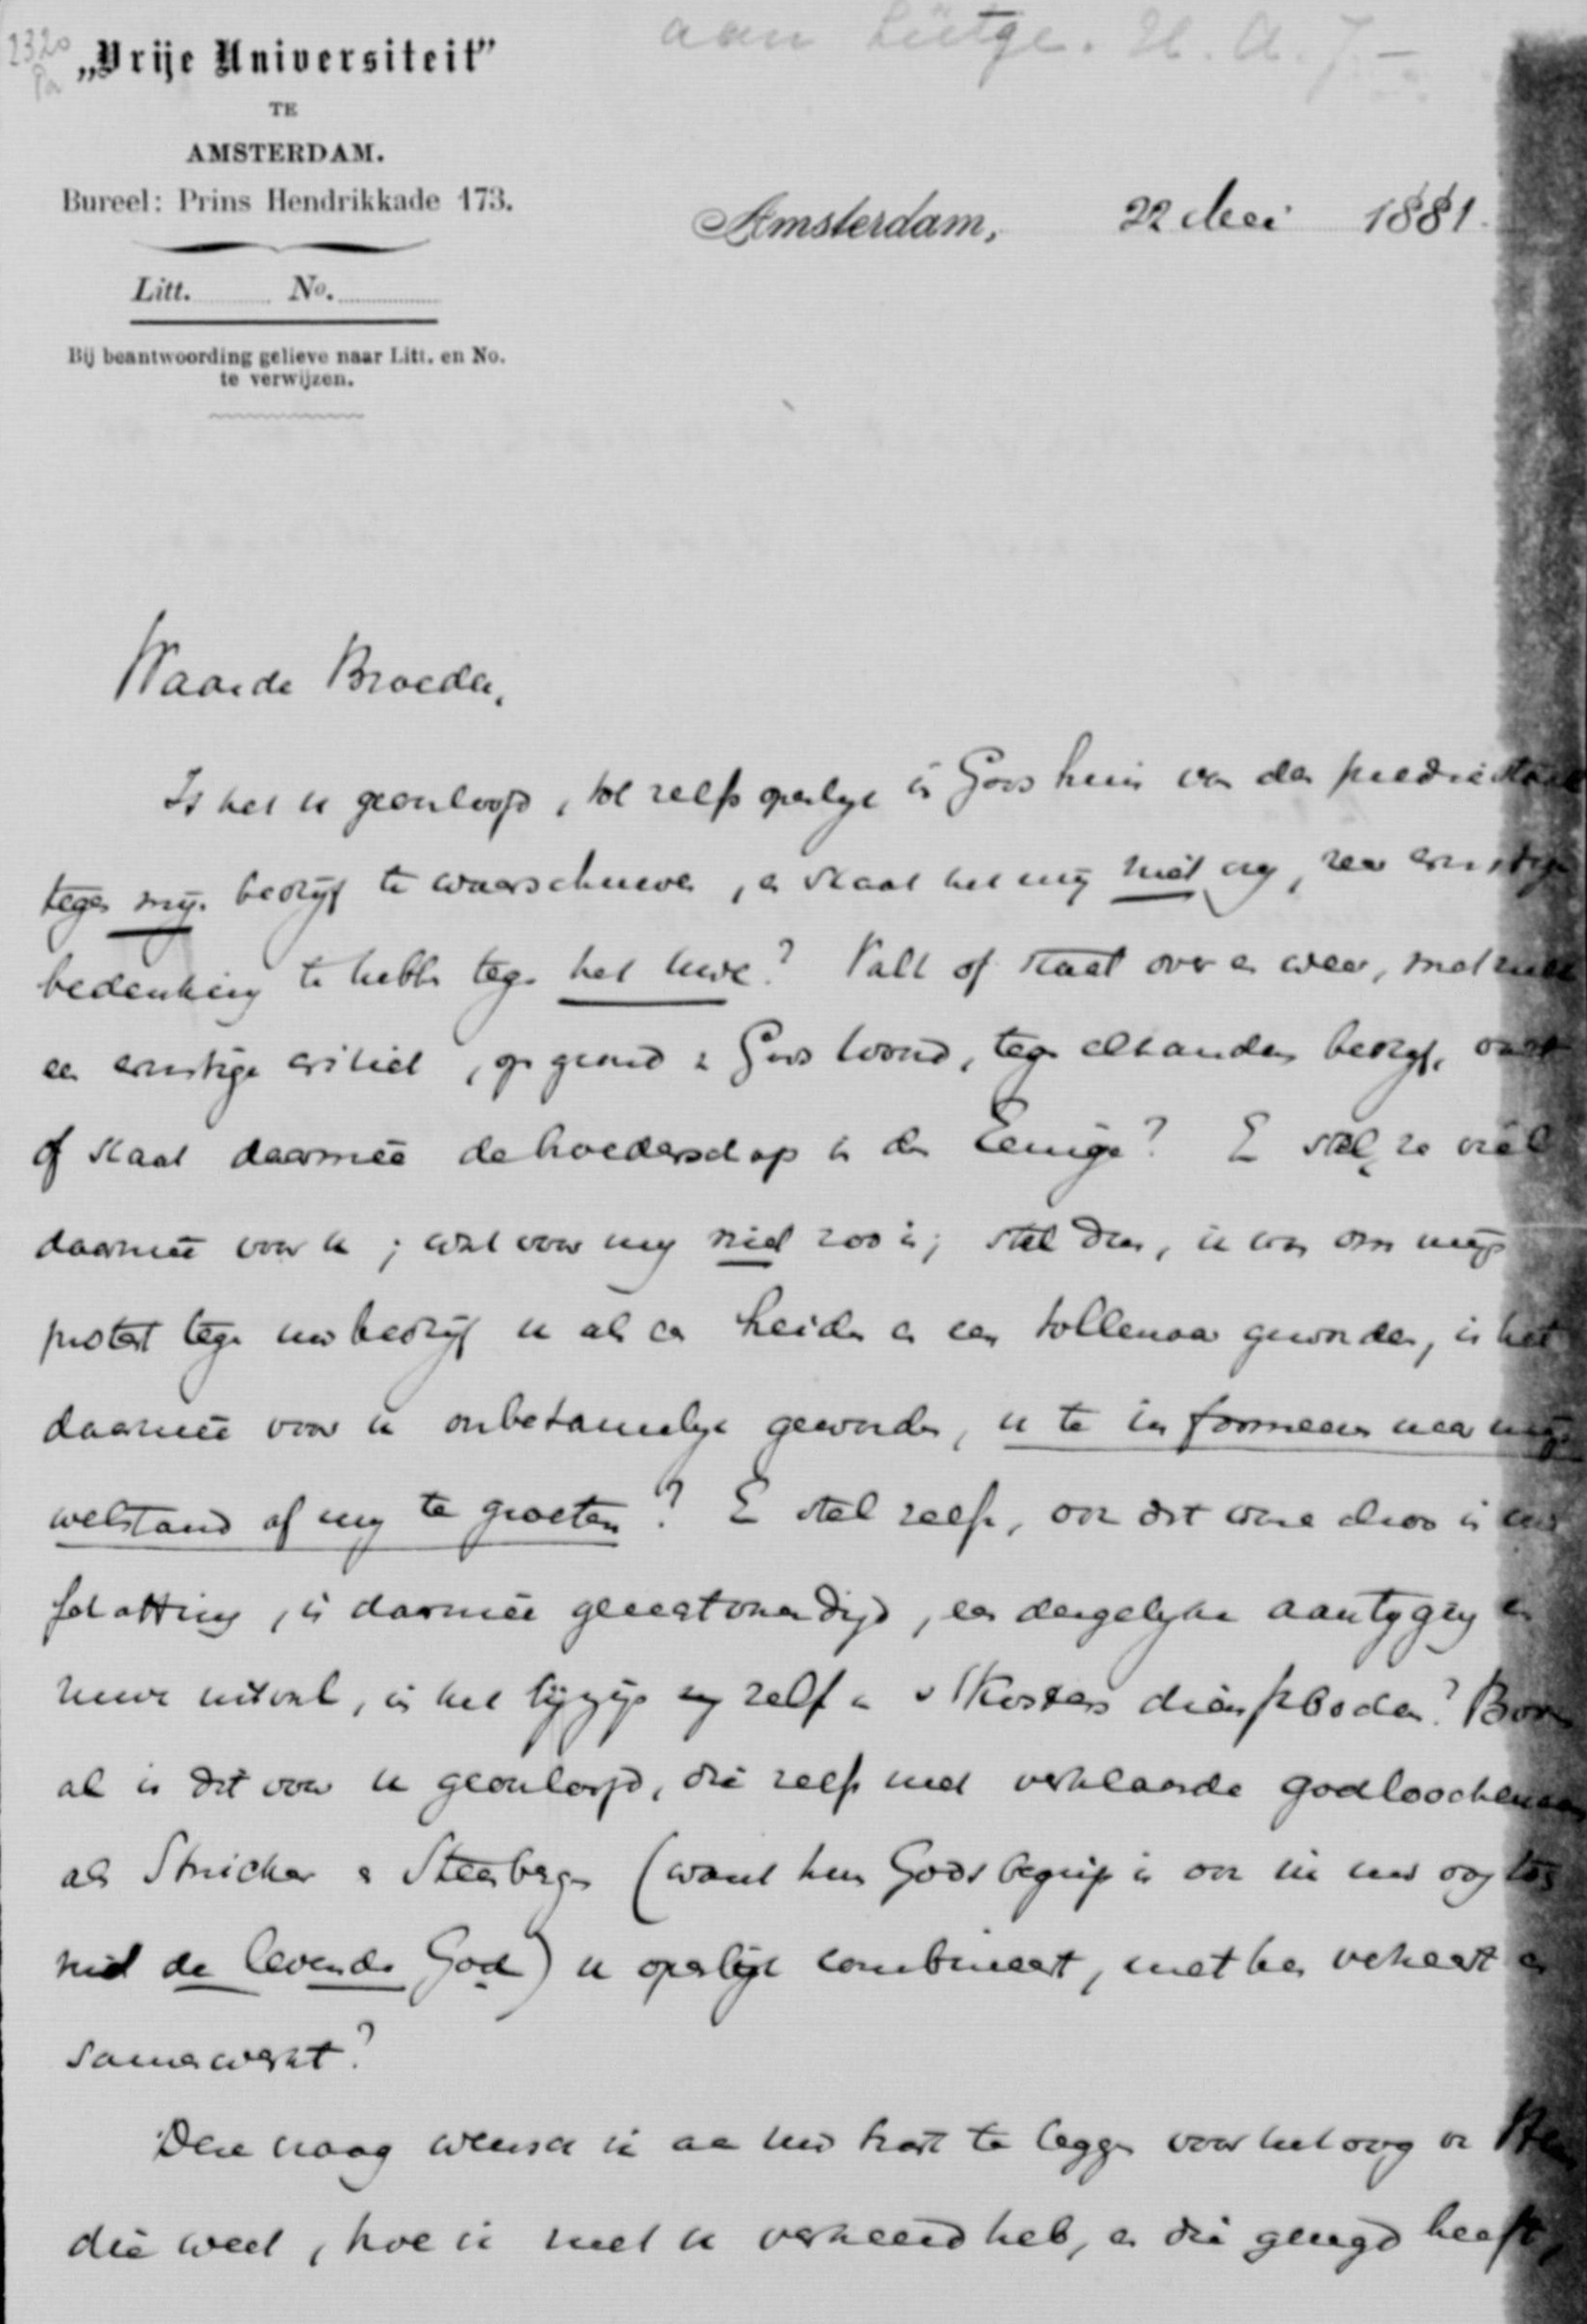 2320
Pa
„Vrije Universiteit”
TE
AMSTERDAM.
Bureel: Prins Hendrikkade 173.
Litt. No.
Bij beantwoording gelieve naar Litt. en No.
te verwijzen.
aan Lütge. H. A. J.
Amsterdam, 22 Mei 1881.
Waarde Broeder,
Is het u geoorloofd, tot zelfs openlijk in Gods huis van den
tegen mijn bedrijf te waarschuwen, en staat het mij niet vrij, zeer ernstige
bedenking te hebben tegen het uwe? Valt of staat over en weer, met
een ernstige critiek, op grond v Gods Woord, tegen elkanders bedrijf,
of staat daarmeê de broederschap in den Eenige? En stel, ze viel
daarmeê voor u; wat voor mij niet zoo is; stel dan, ik was om mijn
protest tegen uw bedrijf u als een heiden en een tollenaar geworden, is het
daarmeê voor u onbetamelijk geworden, u te informeeren naar mijn
welstand of mij te groeten? En stel zelfs, ook dit ware alzoo in uw
schatting, is daarmeê gerechtvaardigd, een dergelijke aantyging en
ruwe uitval, in het bijzijn zelf v 's Kosters dienstboden? Boven
al is dit voor u geoorloofd, die zelfs met verklaarde godloochenaars
als Stricker & Steenbergen (want hun Godsbegrip is ook in uw oog
niet de levende God) u openlijk combineert, met hen verkeert en
samenwerkt?
Deze vraag wensch ik aan uw hart te leggen voor het oog v Hem
die weet, hoe ik met u verkeerd heb, en die getuigd heeft,